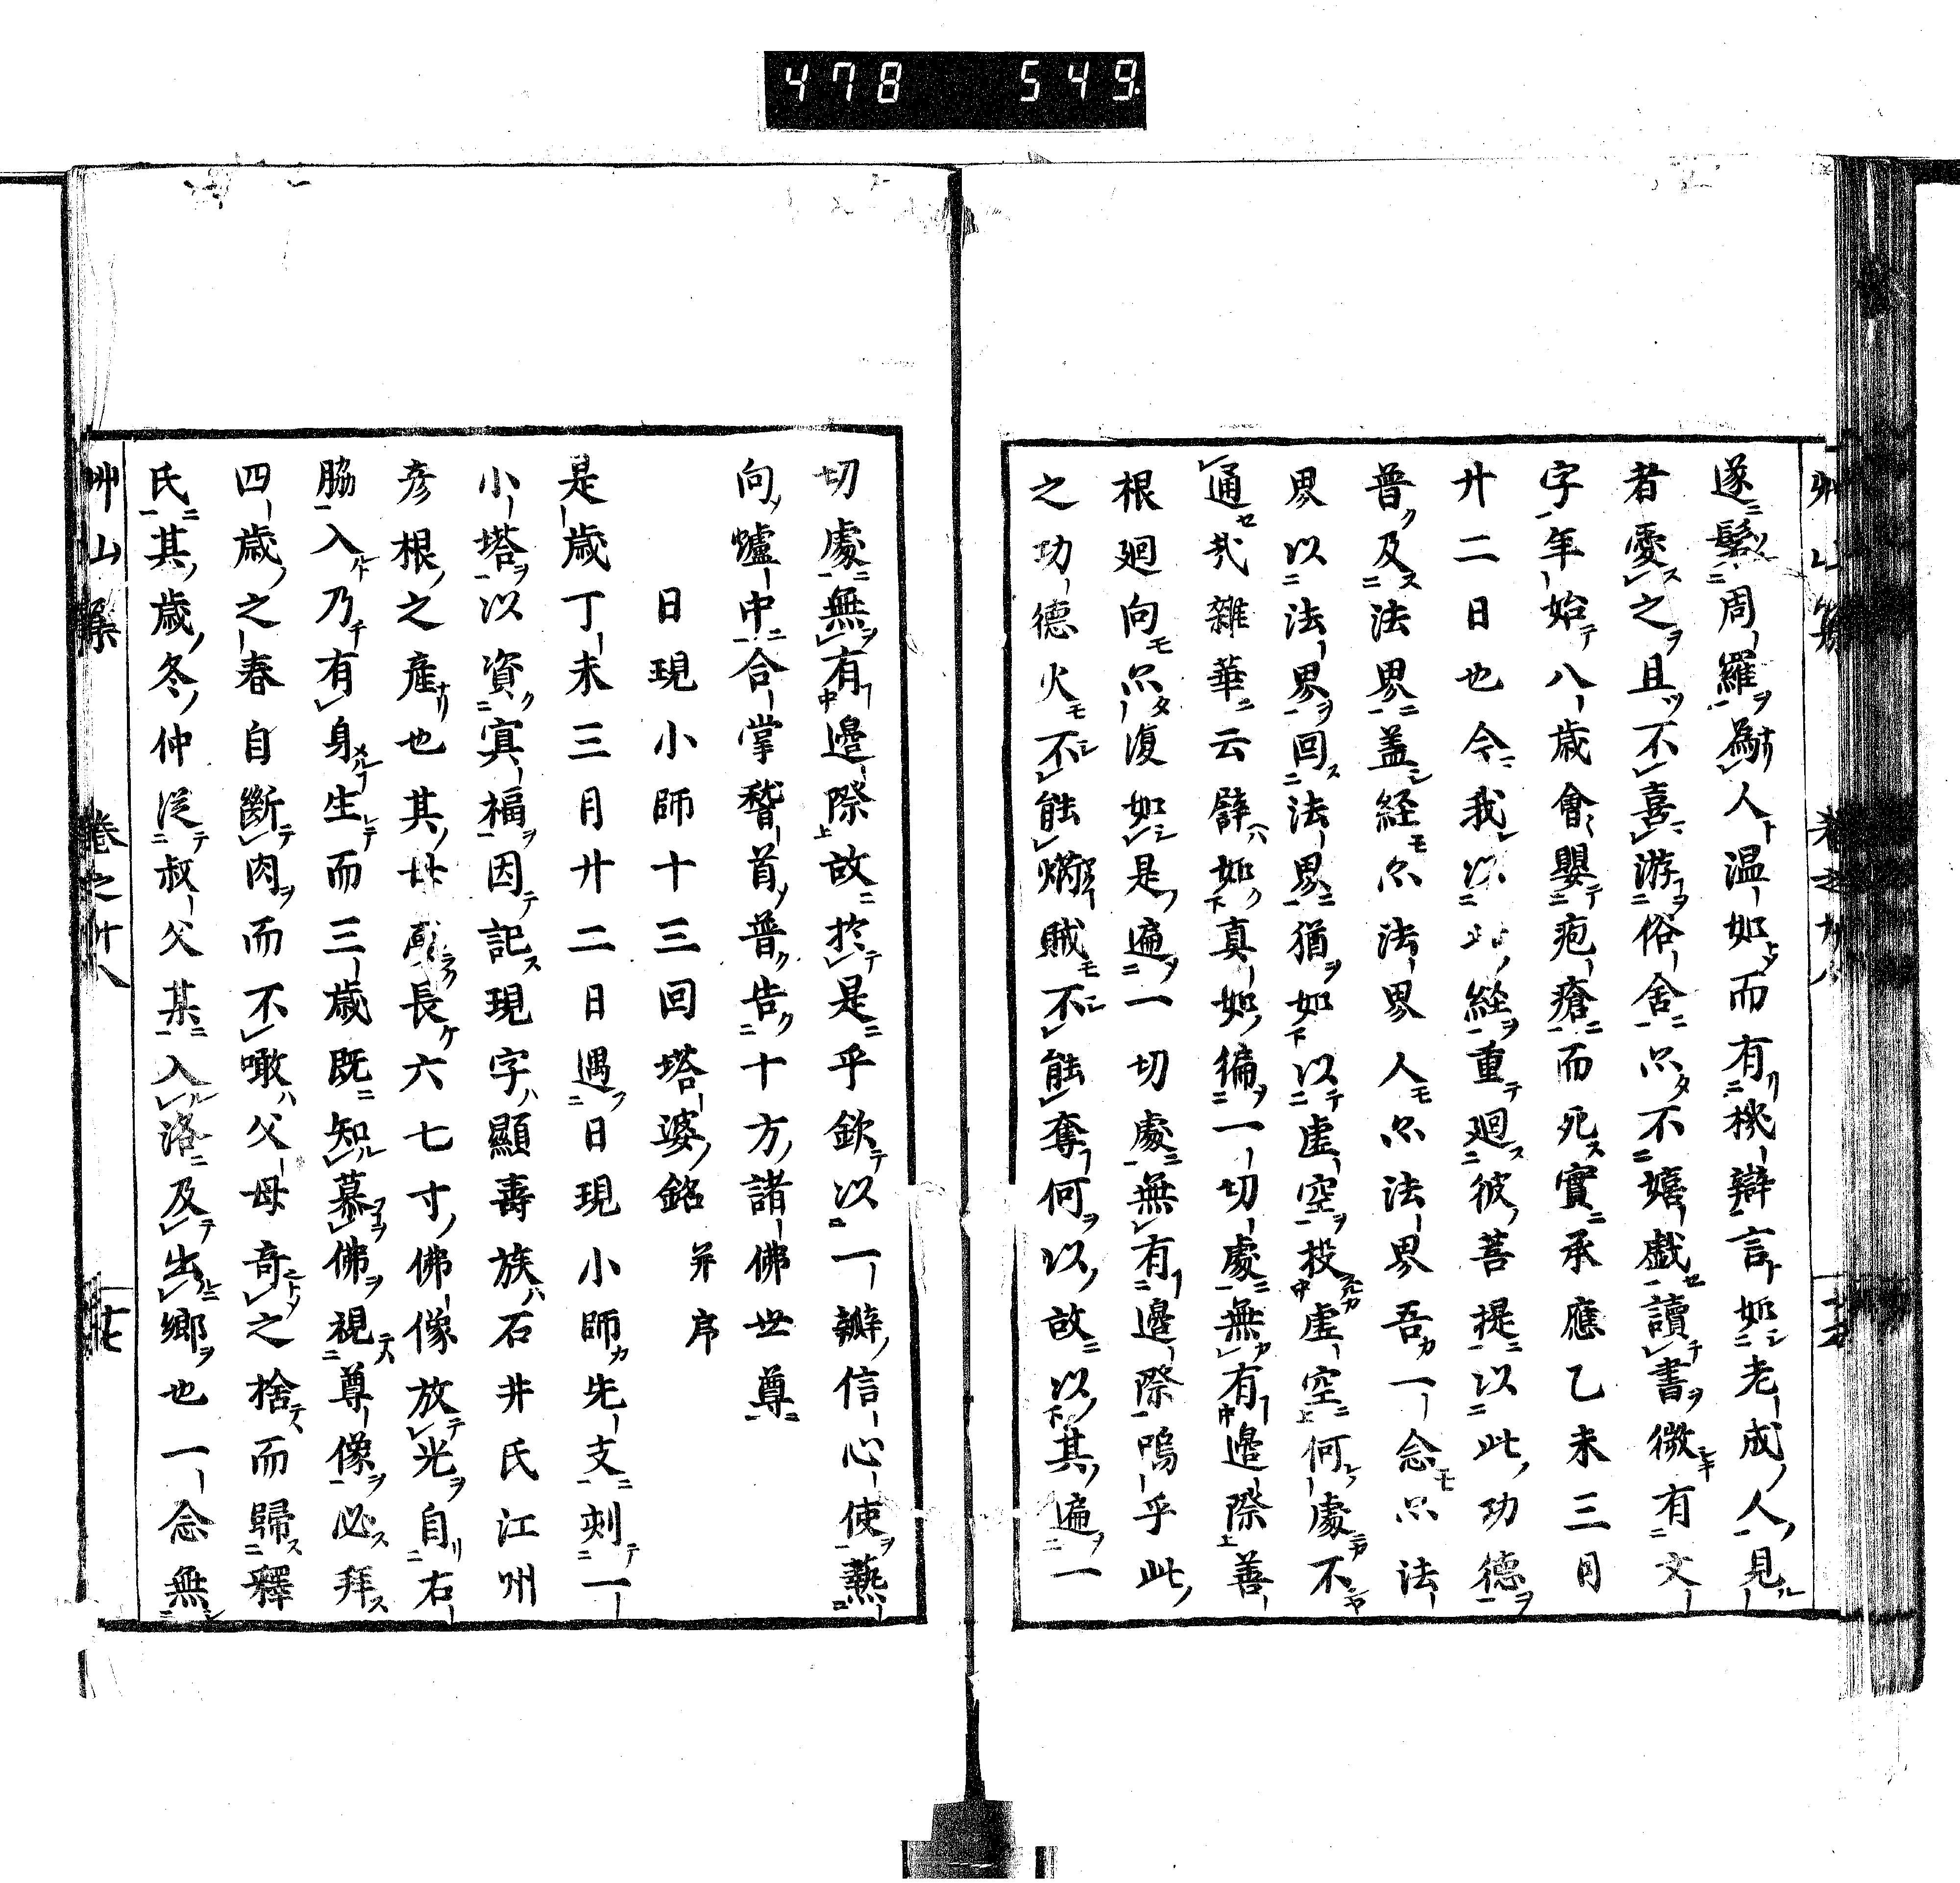 478 549
遂鬀周羅為人温如而有機辯言如老成人見
者愛之且不喜游俗舍亦不嬉戲讀書微有文
字年始八歳會嬰疱瘡而死實承應乙未三月
廿二日也今我以此経重廻彼菩提以此功德
普及法界盖経亦法界人亦法界吾一念亦法
界以法界回法界猶如以虚空投虚空何處不
通哉雜華云譬如真如徧一切處無有邉際善
根廻向亦復如是遍一切處無有邉際嗚乎此
之功德火不能爇賊不能奪何以故以其遍一
切處無有邉際故扵是乎欽以一瓣信心使爇
向爐中合掌稽首普告十方諸佛世尊
日現小師十三回塔婆銘 并序
是歳丁未三月廿二日遇日現小師先支刾一
小塔以資冥福因記現字顯壽族石井氏江州
彦根之産也其母長六七寸佛像放光自右
脇入乃有身生而三歳既知慕佛視尊像必拜
四歳之春自斷肉而不噉父母奇之捨而歸釋
氏其歳冬仲從叔父某入洛及出鄉也一念無
艸山集 卷之廿八 廿七